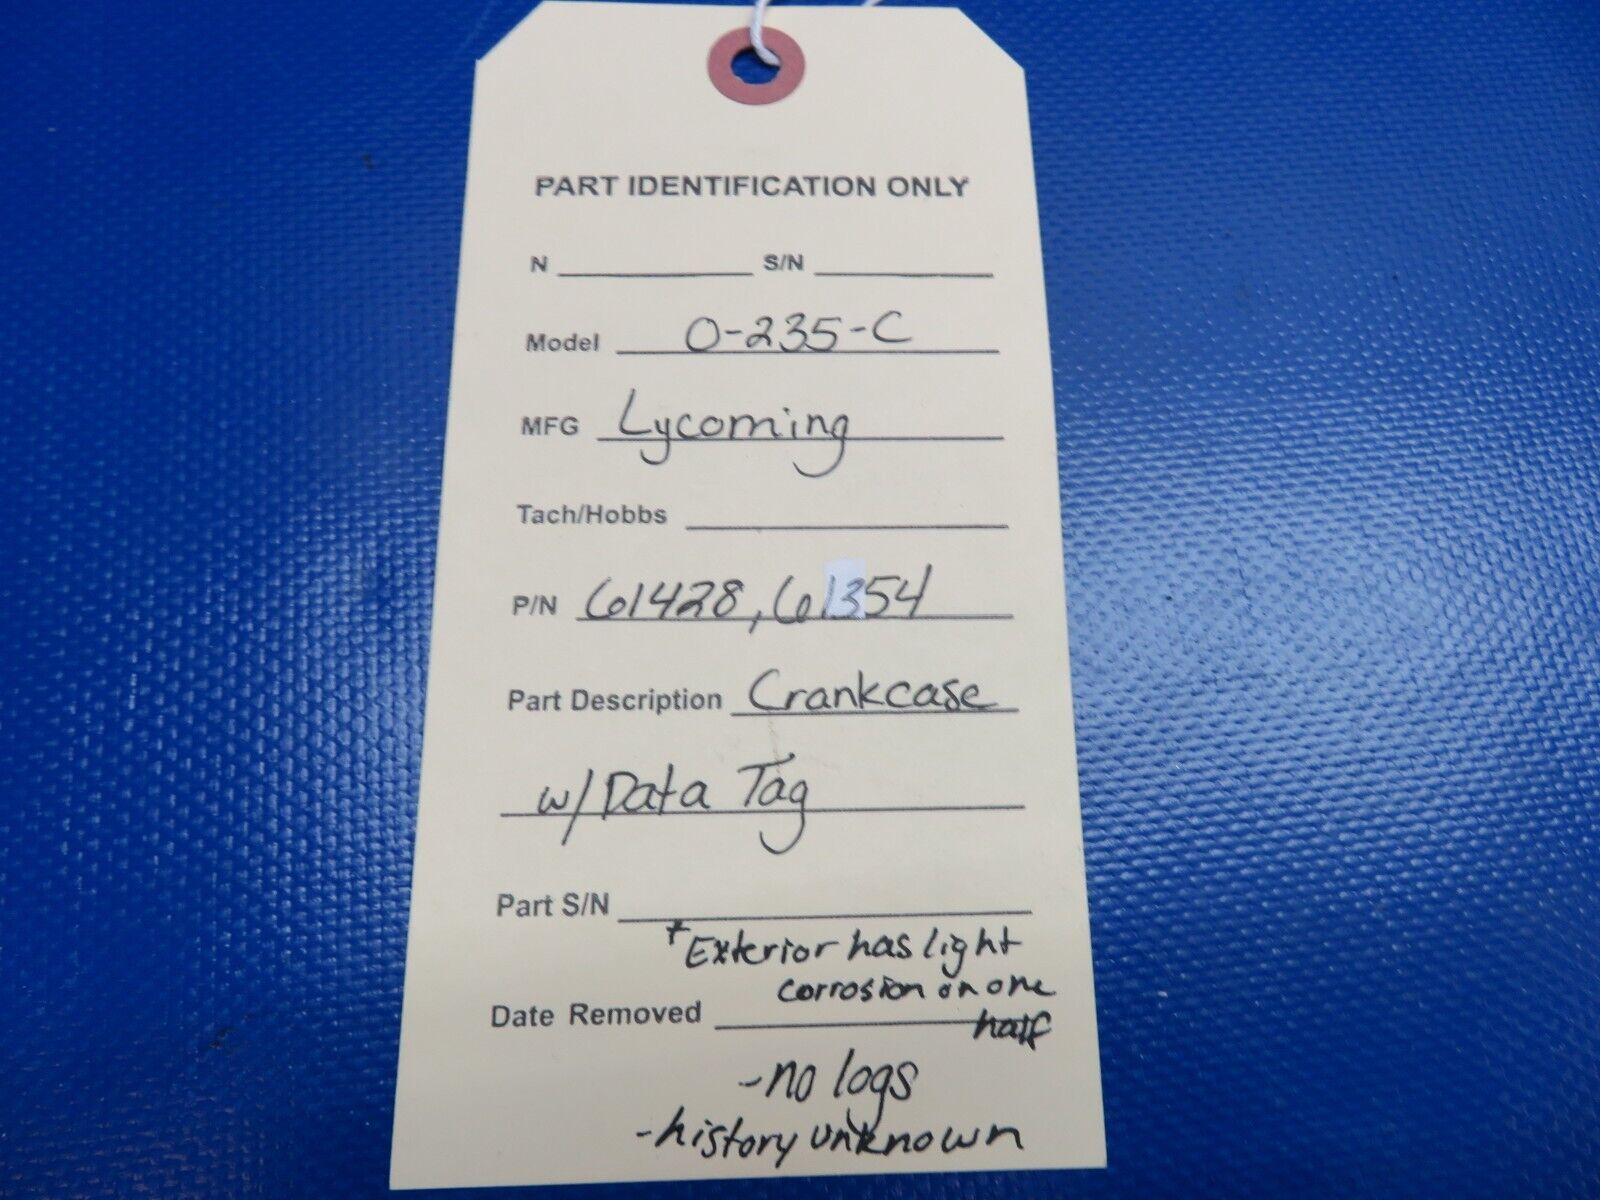 PART IDENTIFICATION ONLY
N S/N
Model O-235-C
MFG Lycoming
Tach/Hobbs
P/N 61428, 61354
Part Description Crankcase
w/ Data Tag
Part S/N
*Exterior has light
corrosion on one
half
Date Removed
- no logs
- history unknown